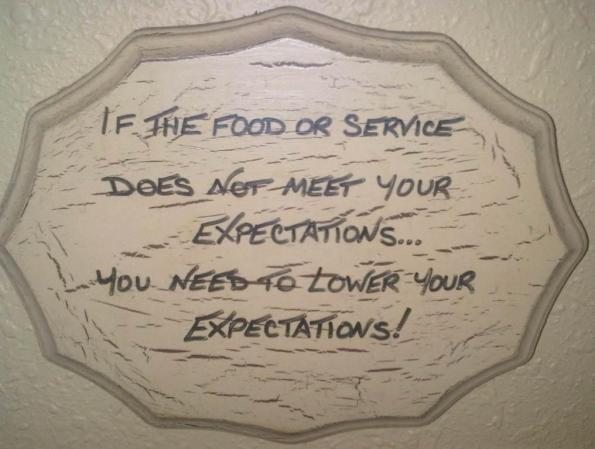 IF THE FOOD OR SERVICE
DOES NOT MEET YOUR
EXPECTATIONS...
YOU NEED TO LOWER YOUR
EXPECTATIONS!